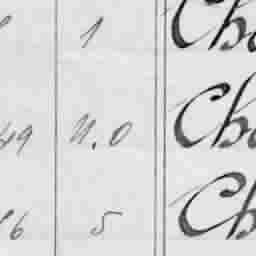 1 Cha
49 N.O Cha
6 5 Ch